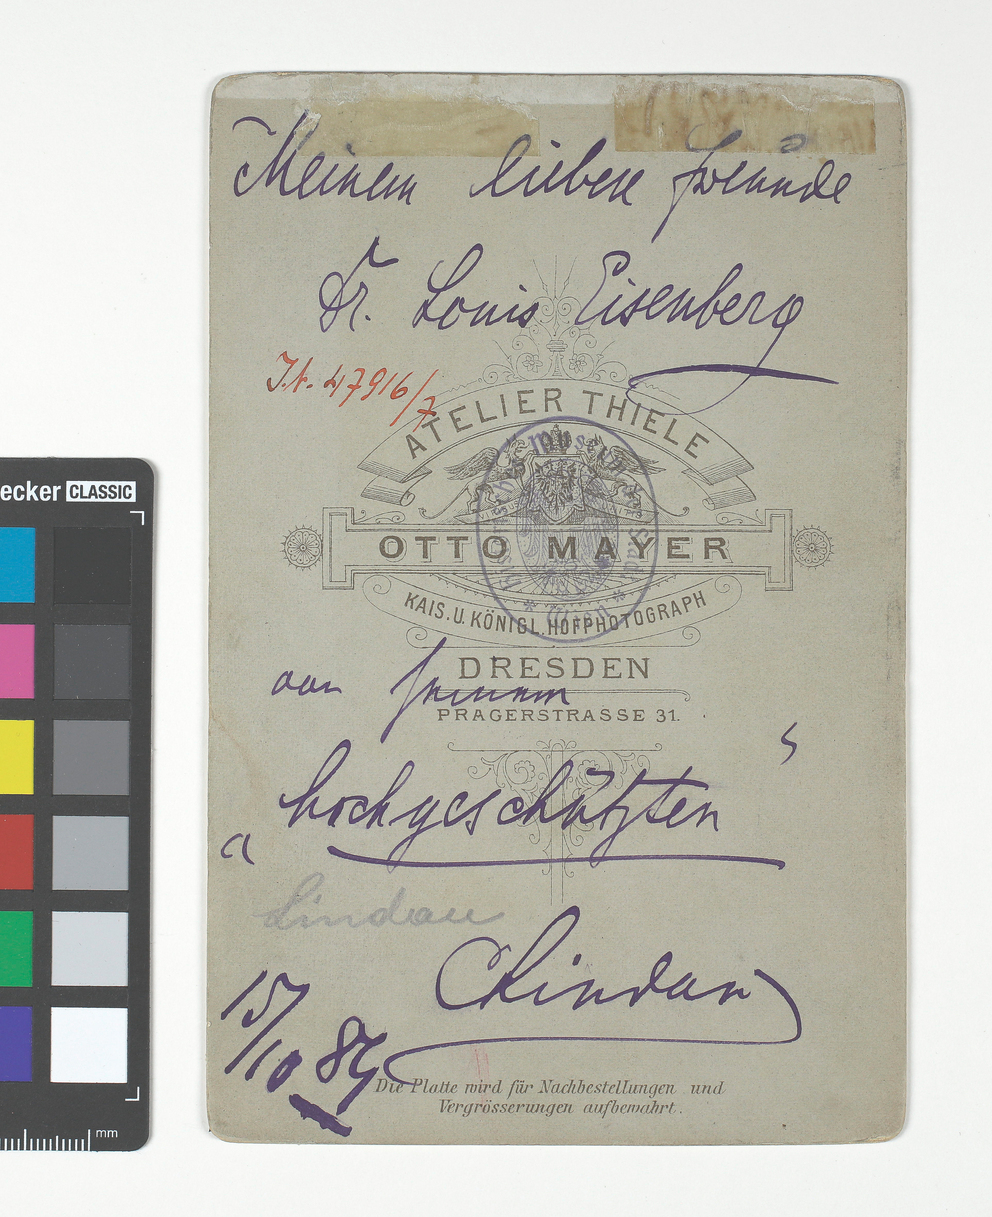 Meinem lieben Freunde
Dr. Louis Eisenberg
J.N. 47916/7
ATELIER THIELE
OTTO MAYER
KAIS. U. KÖNIGL. HOFPHOTOGRAPH
DRESDEN
von seinem
PRAGERSTRASSE 31.
„hochgeschätzten“
Lindau
CLindau
15/10 89
Die Platte wird für Nachbestellungen und
Vergrösserungen aufbewahrt.
ecker CLASSIC
mm